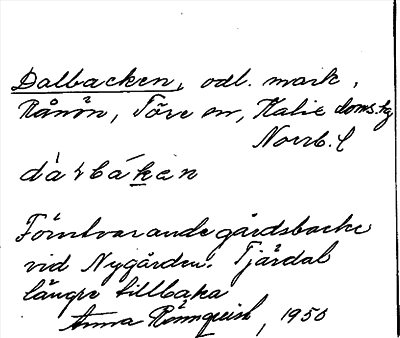 Dalbacken, odl. mark,
Rånön, Töre sn, Kalix doms.hg
Norrb. l
dàrbáken
Förutvarande gårdsbacke
vid Nygården. Tjärdal
längre tillbaka
Anna Rönnquist, 1950